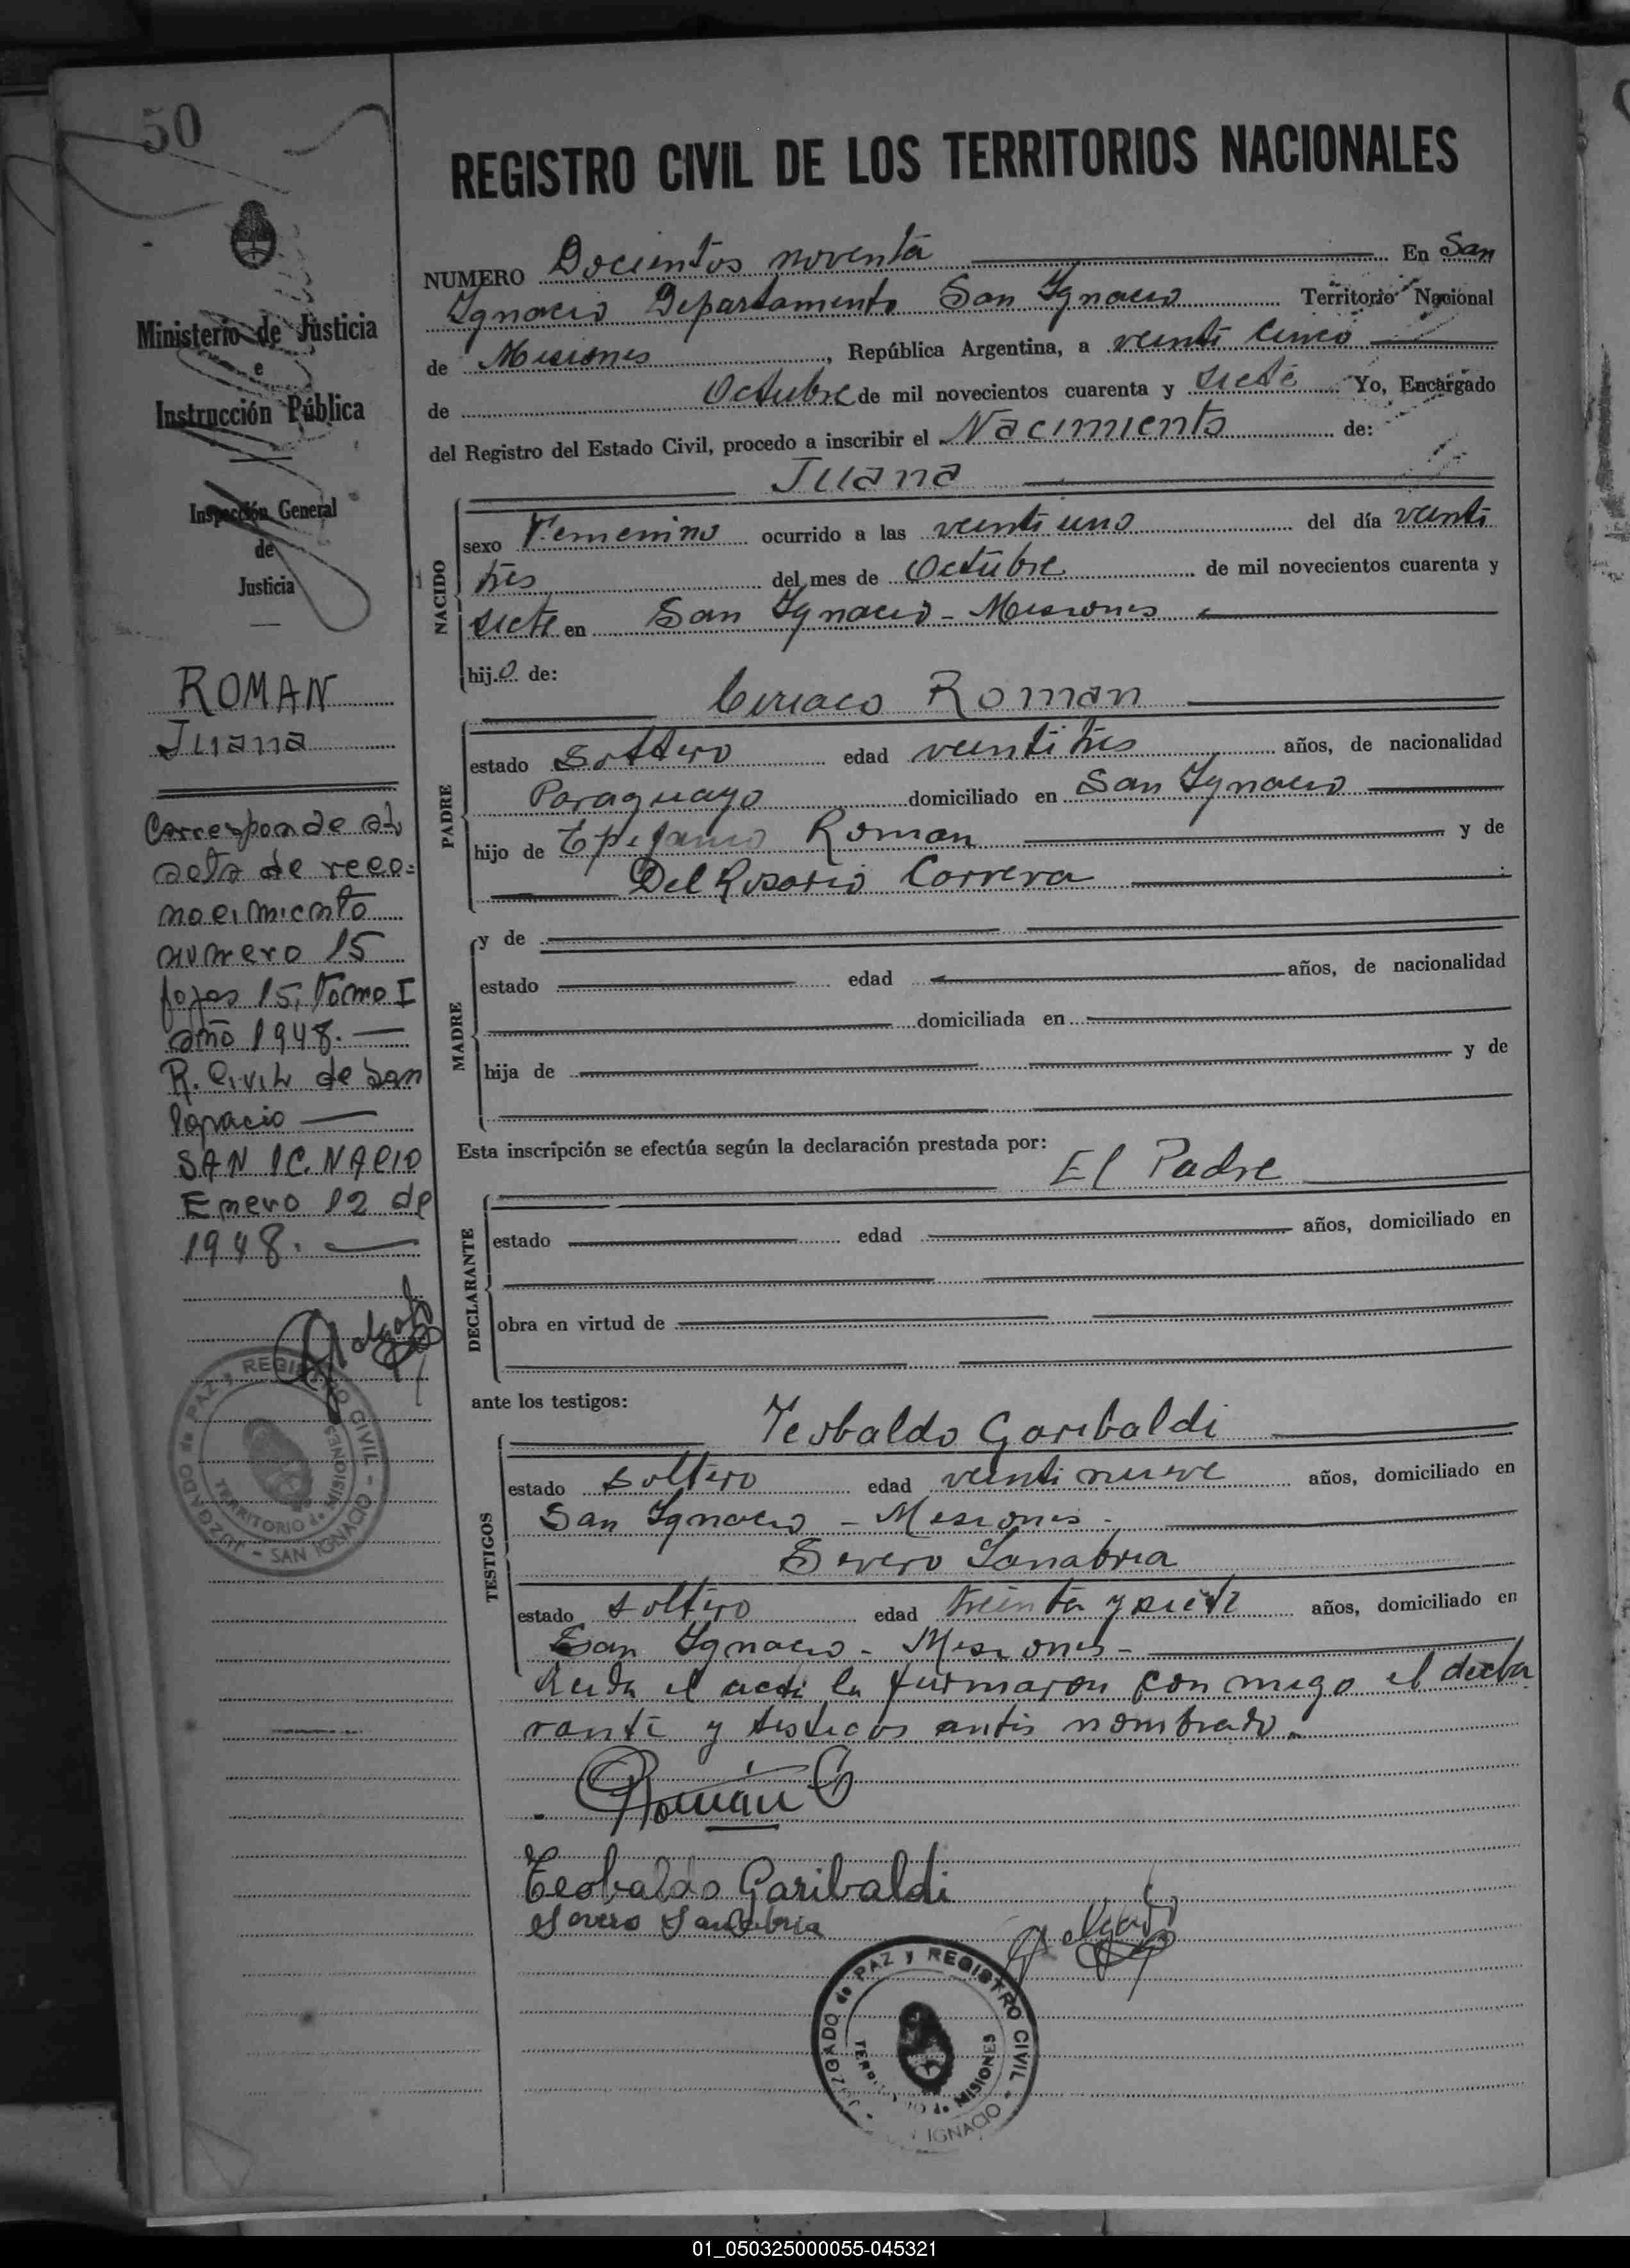 50
REGISTRO CIVIL DE LOS TERRITORIOS NACIONALES
Ministerio de Justicia
e
Instrucción Pública
Inspección General
de
Justicia
ROMAN
Juana
Corresponde al
acta de reco=
nocimiento
numero 15
fojas 15, Tomo I
año 1948.
R. Civil de San
Ignacio
SAN IGNACIO
Enero 12 de
1948.
JUZGADO de PAZ y REGISTRO CIVIL - SAN IGNACIO -
TERRITORIO de MISIONES
NUMERO Docientos noventa En San
Ygnacio Departamento San Ygnacio Territorio Nacional
de Misiones, República Argentina, a veinti cinco
de Octubre de mil novecientos cuarenta y siete Yo, Encargado
del Registro del Estado Civil, procedo a inscribir el Nacimiento de:
Juana
NACIDO
sexo Femenino ocurrido a las veinti uno del día veinti
tres del mes de Octubre de mil novecientos cuarenta y
siete en San Ygnacio - Misiones
hijo de:
Ciriaco Roman
PADRE
estado Soltero edad veinti tres años, de nacionalidad
Paraguayo domiciliado en San Ygnacio
hijo de Epifanio Roman y de
Del Rosario Correra
MADRE
y de
estado edad años, de nacionalidad
domiciliada en
hija de y de
Esta inscripción se efectúa según la declaración prestada por:
El Padre
DECLARANTE
estado edad años, domiciliado en
obra en virtud de
ante los testigos:
Teobaldo Garibaldi
TESTIGOS
estado soltero edad veinti nueve años, domiciliado en
San Ygnacio - Misiones -
Severo Sanabria
estado soltero edad treinta y siete años, domiciliado en
San Ygnacio - Misiones -
Leida el acta la firmaron con migo el decla
rante y testigos antes nombrado.
Román C
Teobaldo Garibaldi
Severo Sanabria
JUZGADO de PAZ y REGISTRO CIVIL - IGNACIO -
MISIONES
01_050325000055-045321